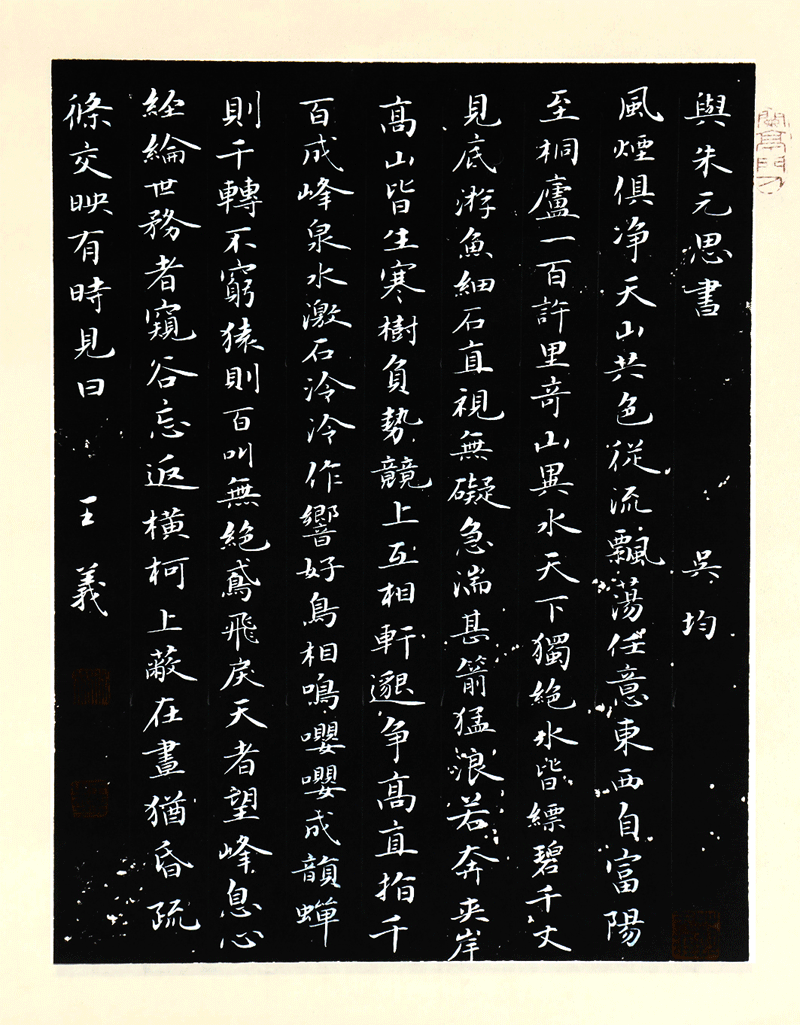 與朱元思書 吳均
風煙俱净天山共色從流飄蕩任意東西自富陽
至桐廬一百許里奇山異水天下獨絕水皆縹碧千丈
見底游魚細石直視無礙急湍甚箭猛浪若奔夹岸
高山皆生寒樹負勢競上互相軒邈争高直指千
百成峰泉水激石泠泠作響好鳥相鳴嚶嚶成韻蟬
則千轉不窮猿則百叫無絕鳶飛戾天者望峰息心
經綸世務者窺谷忘返橫柯上蔽在晝猶昏疏
條交映有時見日 王義